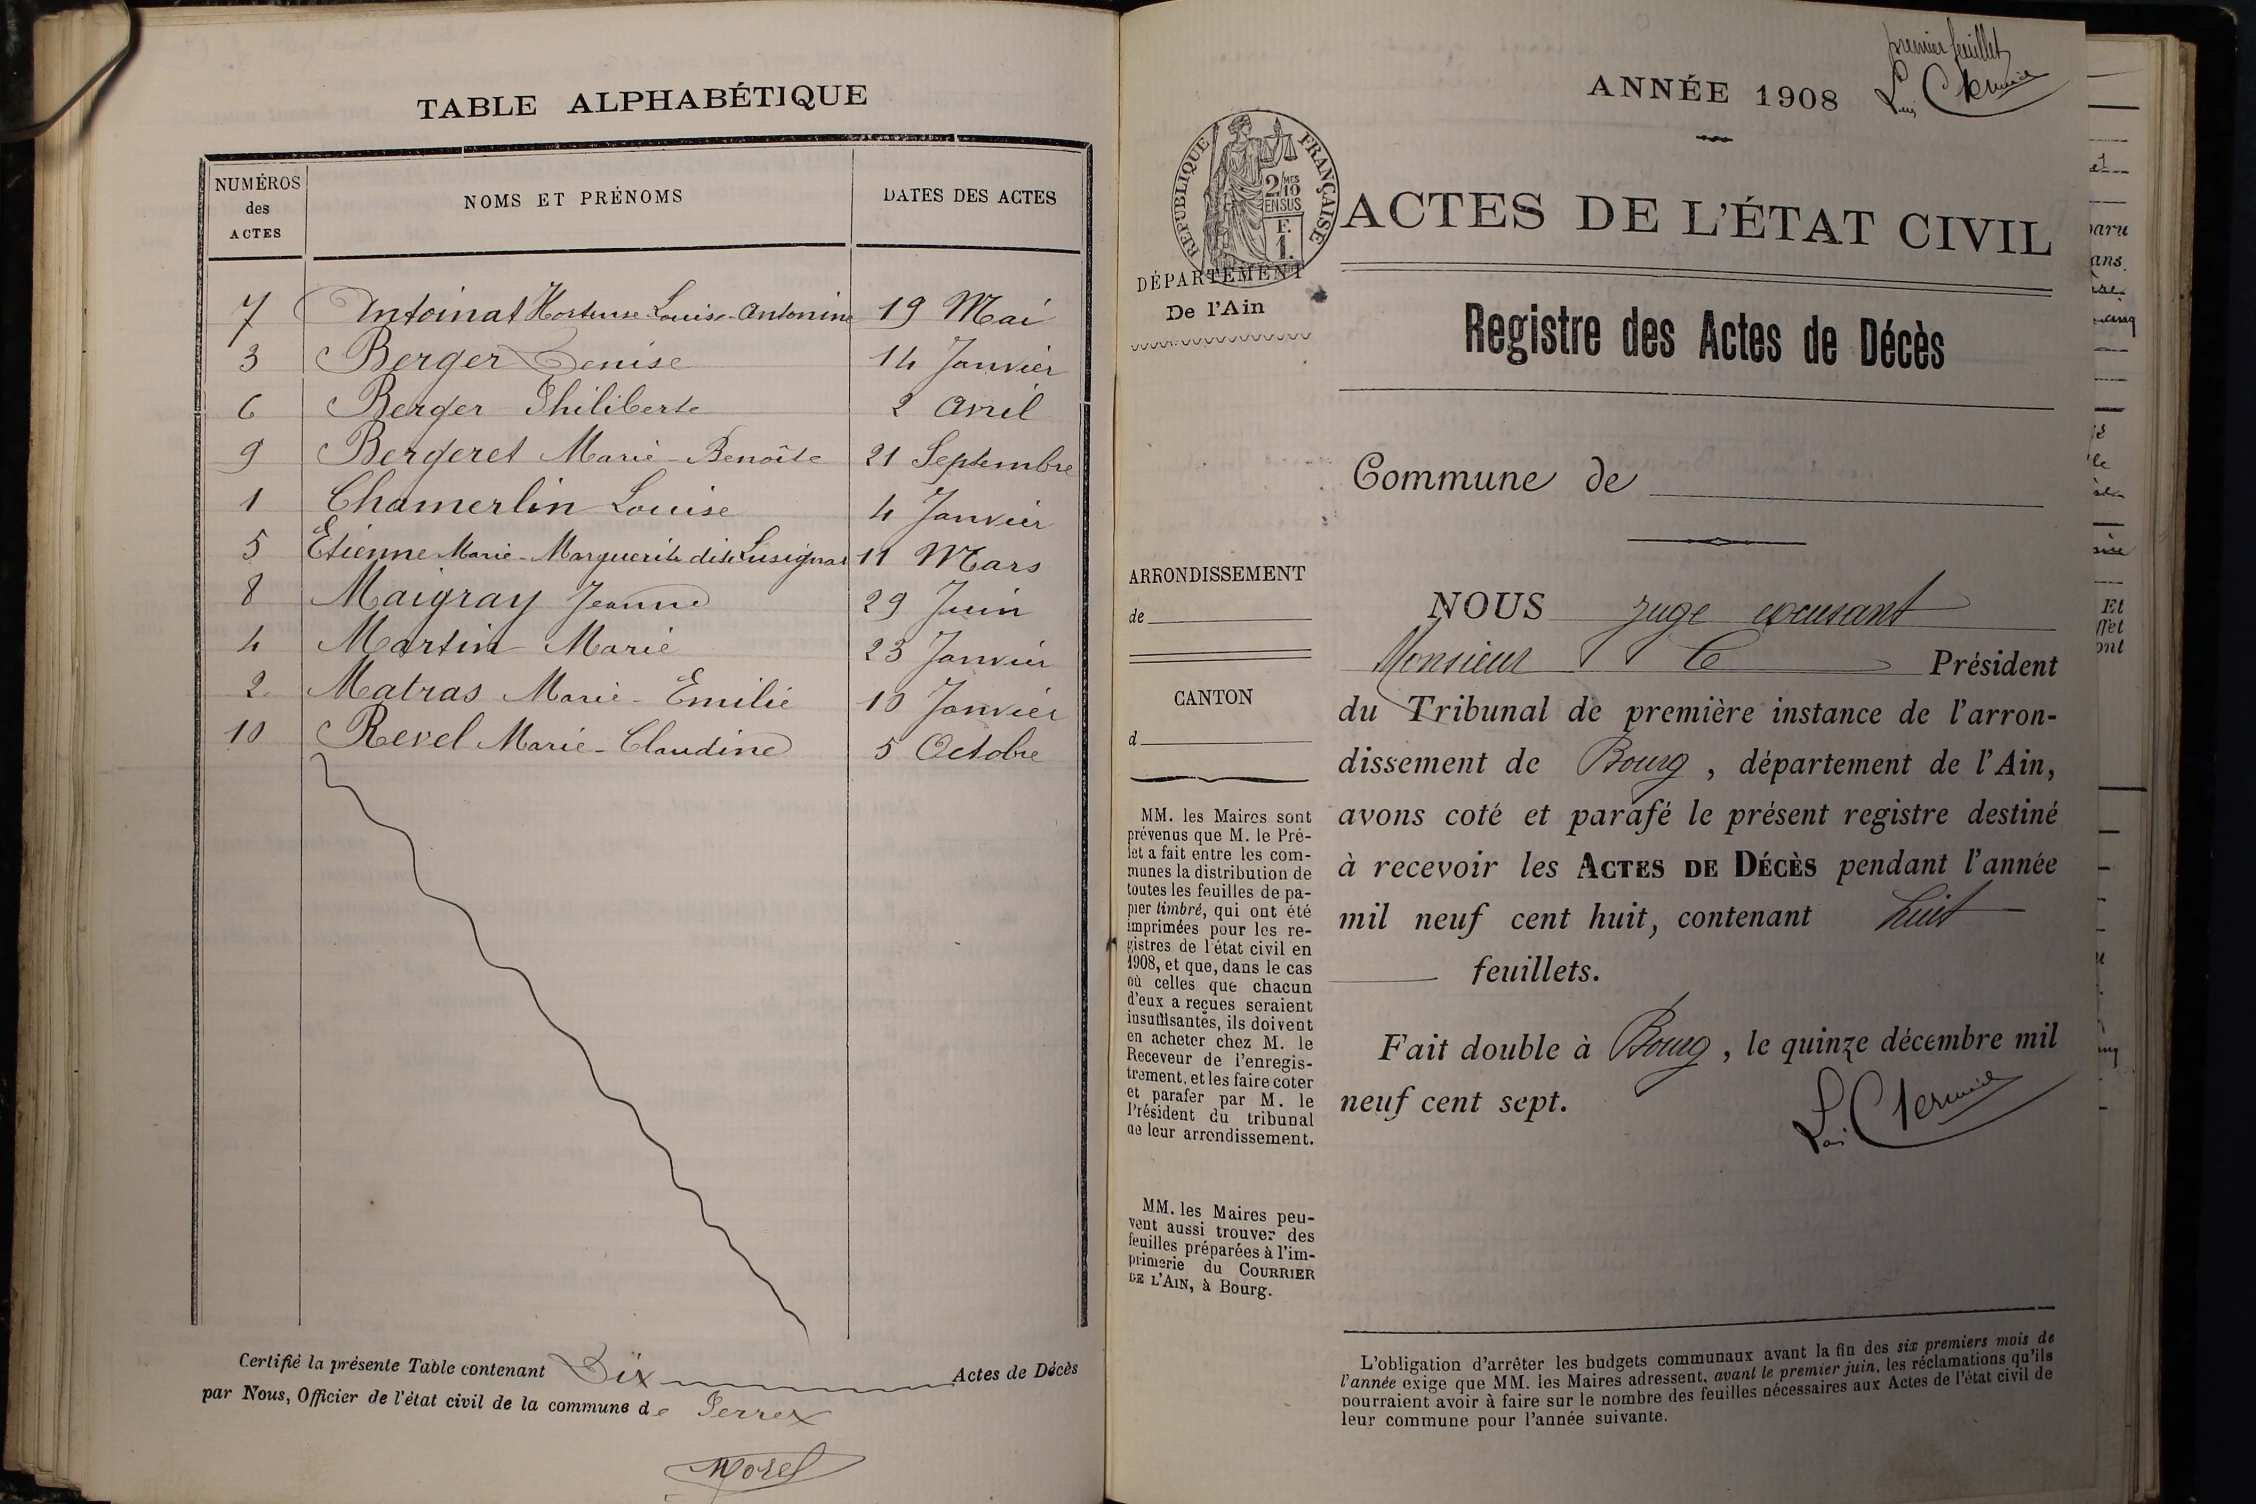 TABLE ALPHABÉTIQUE
NUMÉROS des ACTES | NOMS ET PRÉNOMS | DATES DES ACTES
7 Antoinat Hortense Louise-Antonine 19 Mai
3 Berger Denise 14 Janvier
6 Berger Philiberte 2 Avril
9 Bergeret Marie-Benoîte 21 Septembre
1 Chamerlin Louise 4 Janvier
5 Etienne Marie-Marguerite dite Lusignan 11 Mars
8 Maigray Jeanne 29 Juin
4 Martin Marie 23 Janvier
2 Matras Marie-Emilie 10 Janvier
10 Revel Marie-Claudine 5 Octobre
Certifié la présente Table contenant Dix Actes de Décès
par Nous, Officier de l'état civil de la commune de Perrex
Morel
premier feuillet
ANNÉE 1908
RÉPUBLIQUE FRANÇAISE
2/10 EN SUS
F. 1.
ACTES DE L'ÉTAT CIVIL
DÉPARTEMENT
De l'Ain
Registre des Actes de Décès
Commune de
ARRONDISSEMENT
de
CANTON
d
MM. les Maires sont
prévenus que M. le Pré-
fet a fait entre les com-
munes la distribution de
toutes les feuilles de pa-
pier timbré, qui ont été
imprimées pour les re-
gistres de l'état civil en
1908, et que, dans le cas
où celles que chacun
d'eux a reçues seraient
insuffisantes, ils doivent
en acheter chez M. le
Receveur de l'enregis-
trement, et les faire coter
et parafer par M. le
Président du tribunal
de leur arrondissement.
MM. les Maires peu-
vent aussi trouver des
feuilles préparées à l'im-
primerie du COURRIER
DE L'AIN, à Bourg.
NOUS juge excusant
Monsieur le Président
du Tribunal de première instance de l'arron-
dissement de Bourg, département de l'Ain,
avons coté et parafé le présent registre destiné
à recevoir les ACTES DE DÉCÈS pendant l'année
mil neuf cent huit, contenant huit
feuillets.
Fait double à Bourg, le quinze décembre mil
neuf cent sept.
L'obligation d'arrêter les budgets communaux avant la fin des six premiers mois de
l'année exige que MM. les Maires adressent, avant le premier juin, les réclamations qu'ils
pourraient avoir à faire sur le nombre des feuilles nécessaires aux Actes de l'état civil de
leur commune pour l'année suivante.